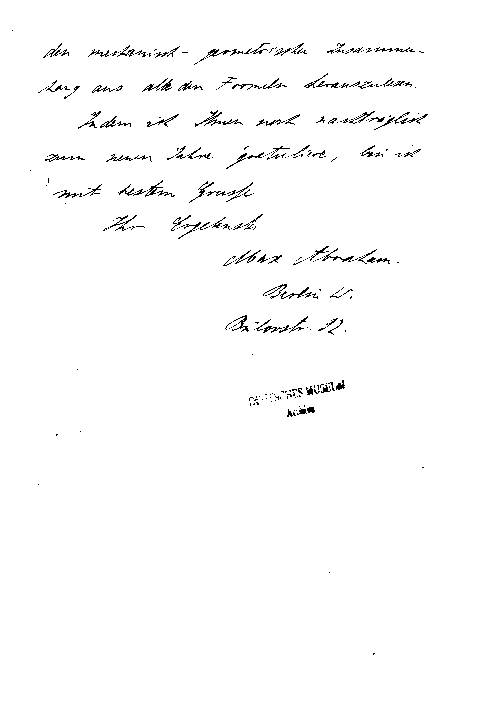 den mechanisch-geometrischen Zusammen-
hang aus all den Formeln herauszulesen.
Indem ich Ihnen noch nachträglich
zum neuen Jahre gratuliere, bin ich
mit bestem Grusse
Ihr Ergebenster
Max Abraham.
Berlin W.
Bülowstr. 92.
DEUTSCHES MUSEUM
Archiv